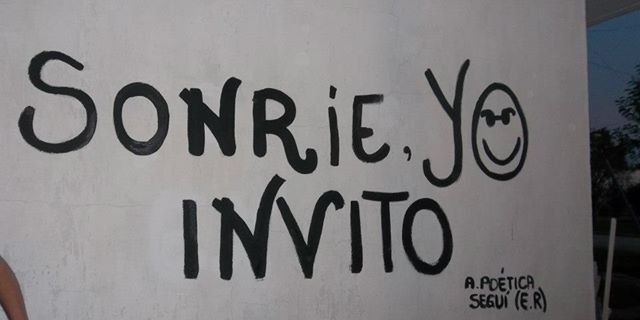 SONRiE, YO
INVITO
A. POÉTICA
SEGUÍ (E.R)